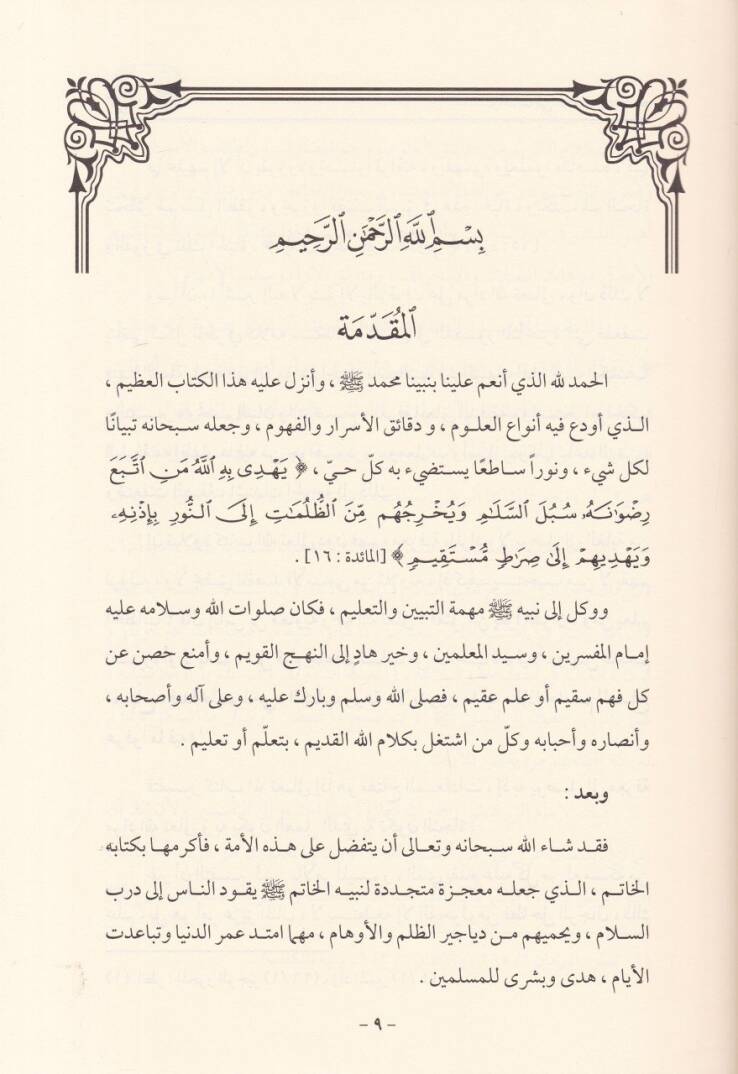 بِسْمِ ٱللَّهِ ٱلرَّحْمَٰنِ ٱلرَّحِيمِ
المُقَدّمَة
الحمد لله الذي أنعم علينا بنبينا محمد ﷺ ، وأنزل عليه هذا الكتاب العظيم ،
الذي أودع فيه أنواع العلوم ، و دقائق الأسرار والفهوم ، وجعله سبحانه تبيانًا
لكل شيء ، ونوراً ساطعًا يستضيء به كلّ حيّ ، ﴿ يَهْدِى بِهِ ٱللَّهُ مَنِ ٱتَّبَعَ
رِضْوَٰنَهُۥ سُبُلَ ٱلسَّلَٰمِ وَيُخْرِجُهُم مِّنَ ٱلظُّلُمَٰتِ إِلَى ٱلنُّورِ بِإِذْنِهِۦ
وَيَهْدِيهِمْ إِلَىٰ صِرَٰطٍ مُّسْتَقِيمٍ ﴾ [المائدة : ١٦] .
ووكل إلى نبيه ﷺ مهمة التبيين والتعليم ، فكان صلوات الله وسلامه عليه
إمام المفسرين ، وسيد المعلمين ، وخير هادٍ إلى النهج القويم ، وأمنع حصن عن
كل فهم سقيم أو علم عقيم ، فصلى الله وسلم وبارك عليه ، وعلى آله وأصحابه ،
وأنصاره وأحبابه وكلّ من اشتغل بكلام الله القديم ، بتعلّم أو تعليم .
وبعد :
فقد شاء الله سبحانه وتعالى أن يتفضل على هذه الأمة ، فأكرمها بكتابه
الخاتم ، الذي جعله معجزة متجددة لنبيه الخاتم ﷺ يقود الناس إلى درب
السلام ، ويحميهم من دياجير الظلم والأوهام ، مهما امتد عمر الدنيا وتباعدت
الأيام ، هدى وبشرى للمسلمين .
- ٩ -